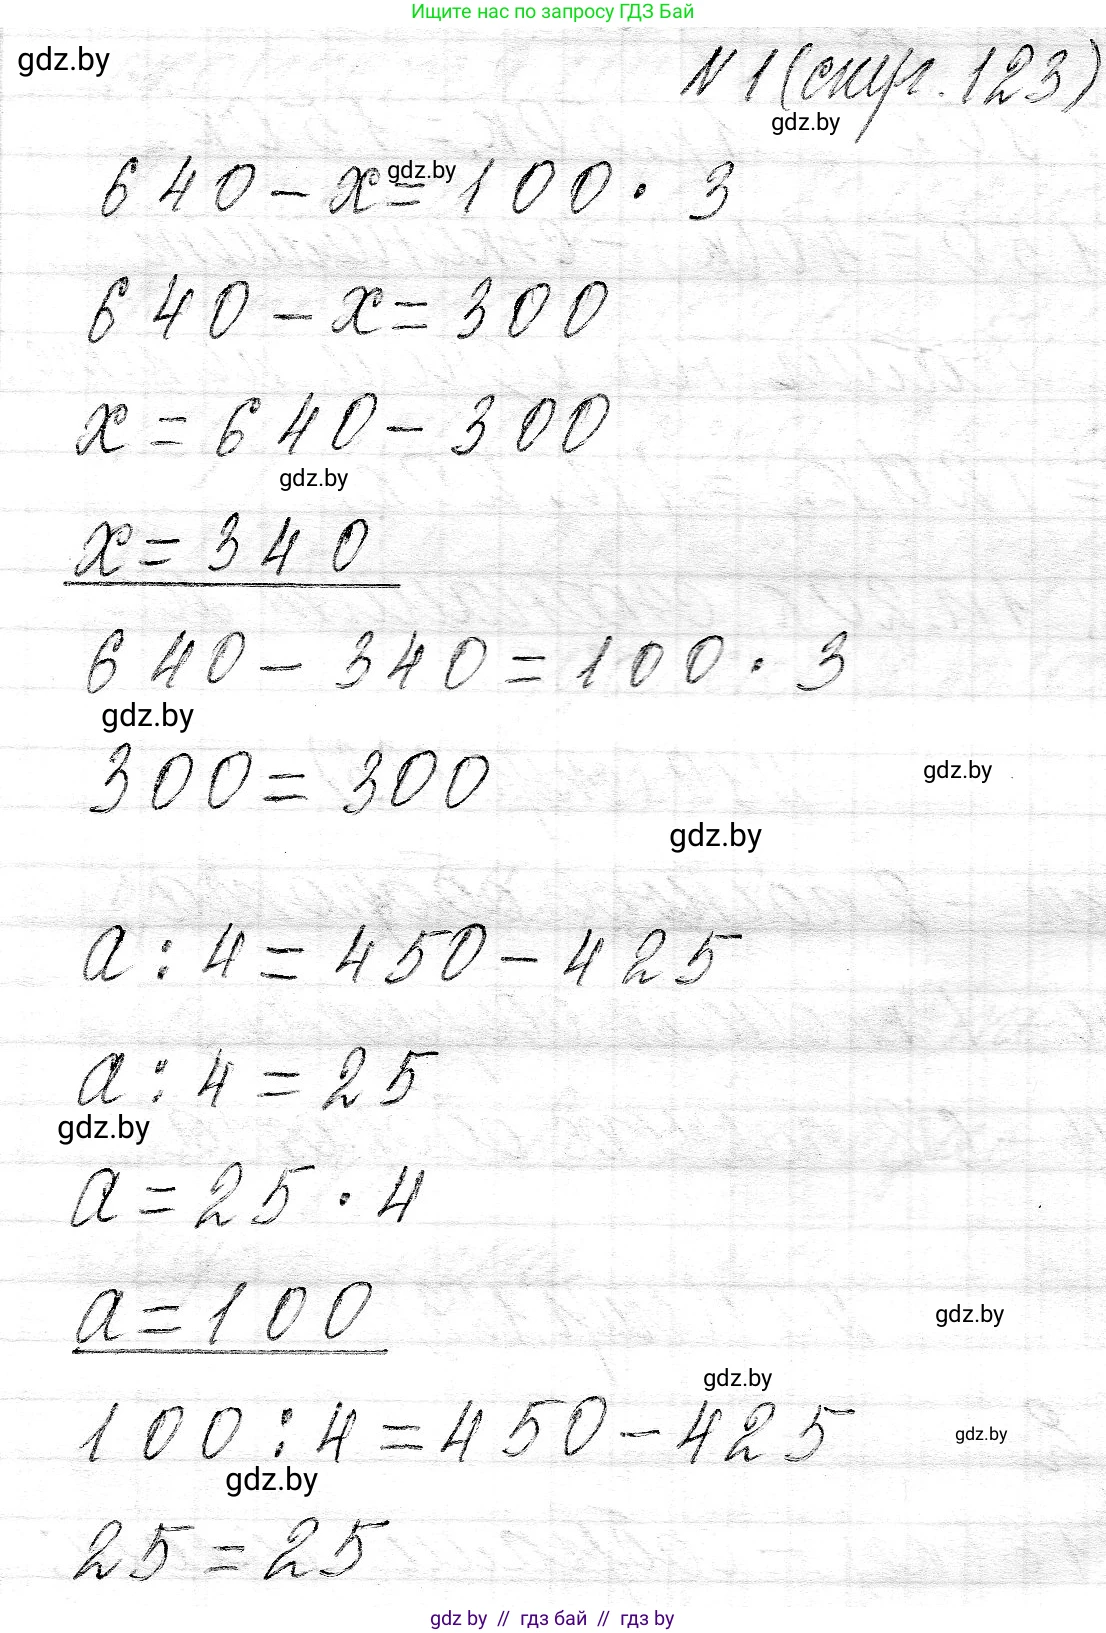 Ищите нас по запросу ГДЗ Бай
gdz.by
N 1 (стр. 123)
gdz.by
640 - x = 100 · 3
gdz.by
640 - x = 300
x = 640 - 300
gdz.by
x = 340
640 - 340 = 100 · 3
gdz.by
300 = 300
gdz.by
gdz.by
a : 4 = 450 - 425
a : 4 = 25
gdz.by
a = 25 · 4
a = 100
gdz.by
gdz.by
100 : 4 = 450 - 425
gdz.by
gdz.by
25 = 25
gdz by // гдз бай // гдз by